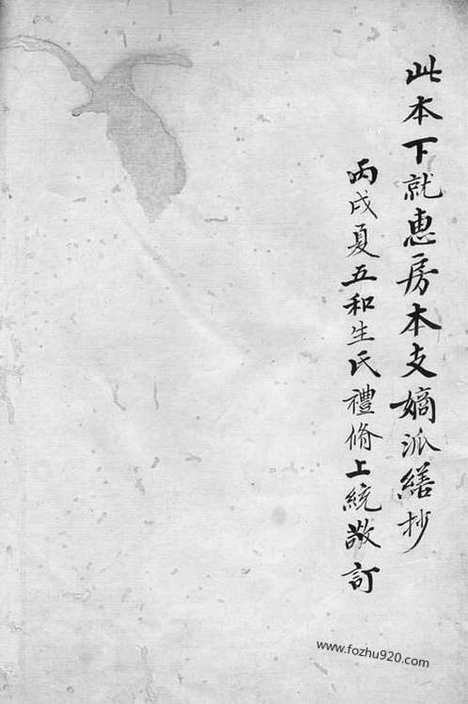 此本下就惠房本支嫡派繕抄
丙戌夏五和生氏禮脩上統敬訂
www.fozhu920.com